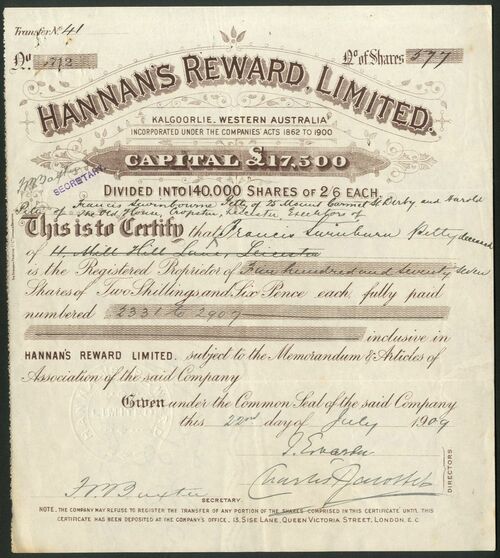 Transfer No. 41
No 5712 No of Shares 577
HANNAN'S REWARD, LIMITED.
KALGOORLIE, WESTERN AUSTRALIA
INCORPORATED UNDER THE COMPANIES' ACTS 1862 TO 1900
CAPITAL £17,500
DIVIDED INTO 140,000 SHARES OF 2/6 EACH.
SECRETARY
Francis Swinbourne Petty of 75 Mount Carmel St Derby and Harold
Petty of The Old House, Cropston, Leicester, Executors of
This is to Certify that Francis Swinburn Petty deceased
of 11, Mill Hill Lane, Leicester
is the Registered Proprietor of Five hundred and seventy seven
Shares of Two Shillings and Six Pence each, fully paid
numbered 2331 to 2907
inclusive in
HANNAN'S REWARD LIMITED. subject to the Memorandum & Articles of
Association of the said Company
Given under the Common Seal of the said Company
this 22nd day of July 1909
DIRECTORS.
SECRETARY.
NOTE. THE COMPANY MAY REFUSE TO REGISTER THE TRANSFER OF ANY PORTION OF THE SHARES COMPRISED IN THIS CERTIFICATE UNTIL THIS
CERTIFICATE HAS BEEN DEPOSITED AT THE COMPANY'S OFFICE. 13, SISE LANE, QUEEN VICTORIA STREET, LONDON, E.C